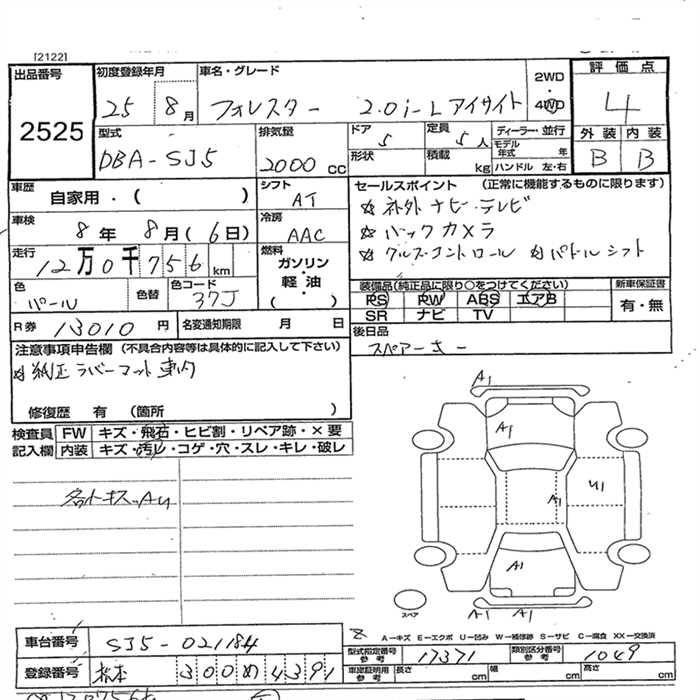 [2122]
出品番号
2525
初度登録年月
25 8月
車名・グレード
フォレスター 2.0i-L アイサイト
2WD
・
4WD
評価点
4
外装 内装
B B
型式
DBA-SJ5
排気量
2000 cc
ドア 5
定員 5人
ディーラー・並行
形状
積載 kg
モデル年式 年
ハンドル 左・右
車歴
自家用・( )
シフト
AT
セールスポイント (正常に機能するものに限ります)
☆ 社外ナビ・テレビ
☆ バックカメラ
☆ クルーズコントロール ☆ パドルシフト
車検
8年 8月(6日)
冷房
AAC
走行
12万0千756km
燃料
ガソリン
・
軽油
・
( )
色
パール
色替
色コード
37J
装備品(純正品に限り○をつけてください)
PS PW ABS エアB
SR ナビ TV
新車保証書
有・無
R券 13010円
名変通知期限 月 日
後日品
スペアーキー
注意事項申告欄 (不具合内容等は具体的に記入して下さい)
☆ 純正ラバーマット車内
修復歴 有 (箇所 )
検査員記入欄
FW キズ・飛石・ヒビ割・リペア跡・×要
内装 キズ・汚レ・コゲ・穴・スレ・キレ・破レ
A1
A1
A1
U1
A1
A1 A1
スペア
A-キズ E-エクボ U-凹み W-補修跡 S-サビ C-腐食 XX-交換済
車台番号 SJ5-021184
型式指定番号 参考 17371
類別区分番号 参考 1049
登録番号 松本 300 め 4391
車庫証明用 参考 長さ 幅 高さ